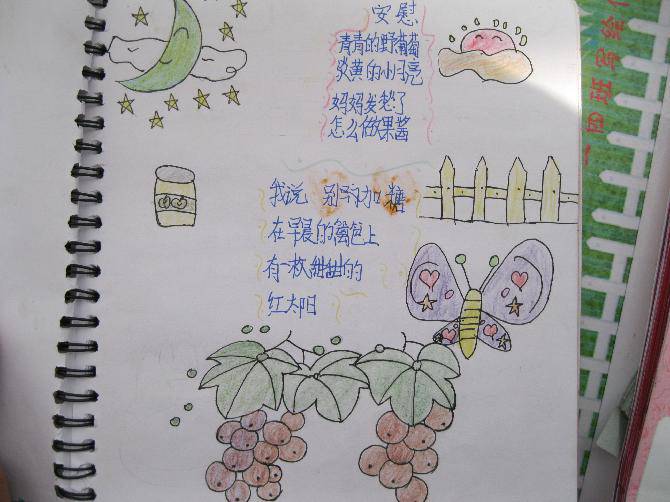 安慰
青青的野葡萄
淡黄的小月亮
妈妈发愁了
怎么做果酱
我说 别加糖
在早晨的篱笆上
有一枚甜甜的
红太阳
四班写绘